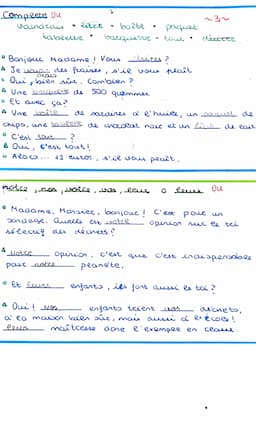 Completa Ou ~3~
voudrais • litre • boîte • paquet
tablette • barquette • tout • désirez
• Bonjour Madame! Vous désirez?
▲ Je voudrais des fraises, s'il vous plaît
• Oui, bien sûr. Combien?
▲ Une barquette de 500 grammes
• Et avec ça?
▲ Une boîte de sardines à l'huile, un paquet de
chips, une tablette de chocolat noir et un litre de lait
• C'est tout?
▲ Oui, c'est tout!
• Alors... 12 euros, s'il vous plaît.
notre, nos, votre, vos, leur o leurs Ou
• Madame, Monsieur, bonjour! C'est pour un
sondage. Quelle est votre opinion sur le tri
sélectif des déchets?
▲ notre opinion, c'est que c'est indispensable
pour notre planète.
• Et leurs enfants, ils font aussi le tri?
▲ Oui! nos enfants trient nos déchets,
à la maison bien sûr, mais aussi à l'école!
leur maîtresse donne l'exemple en classe.